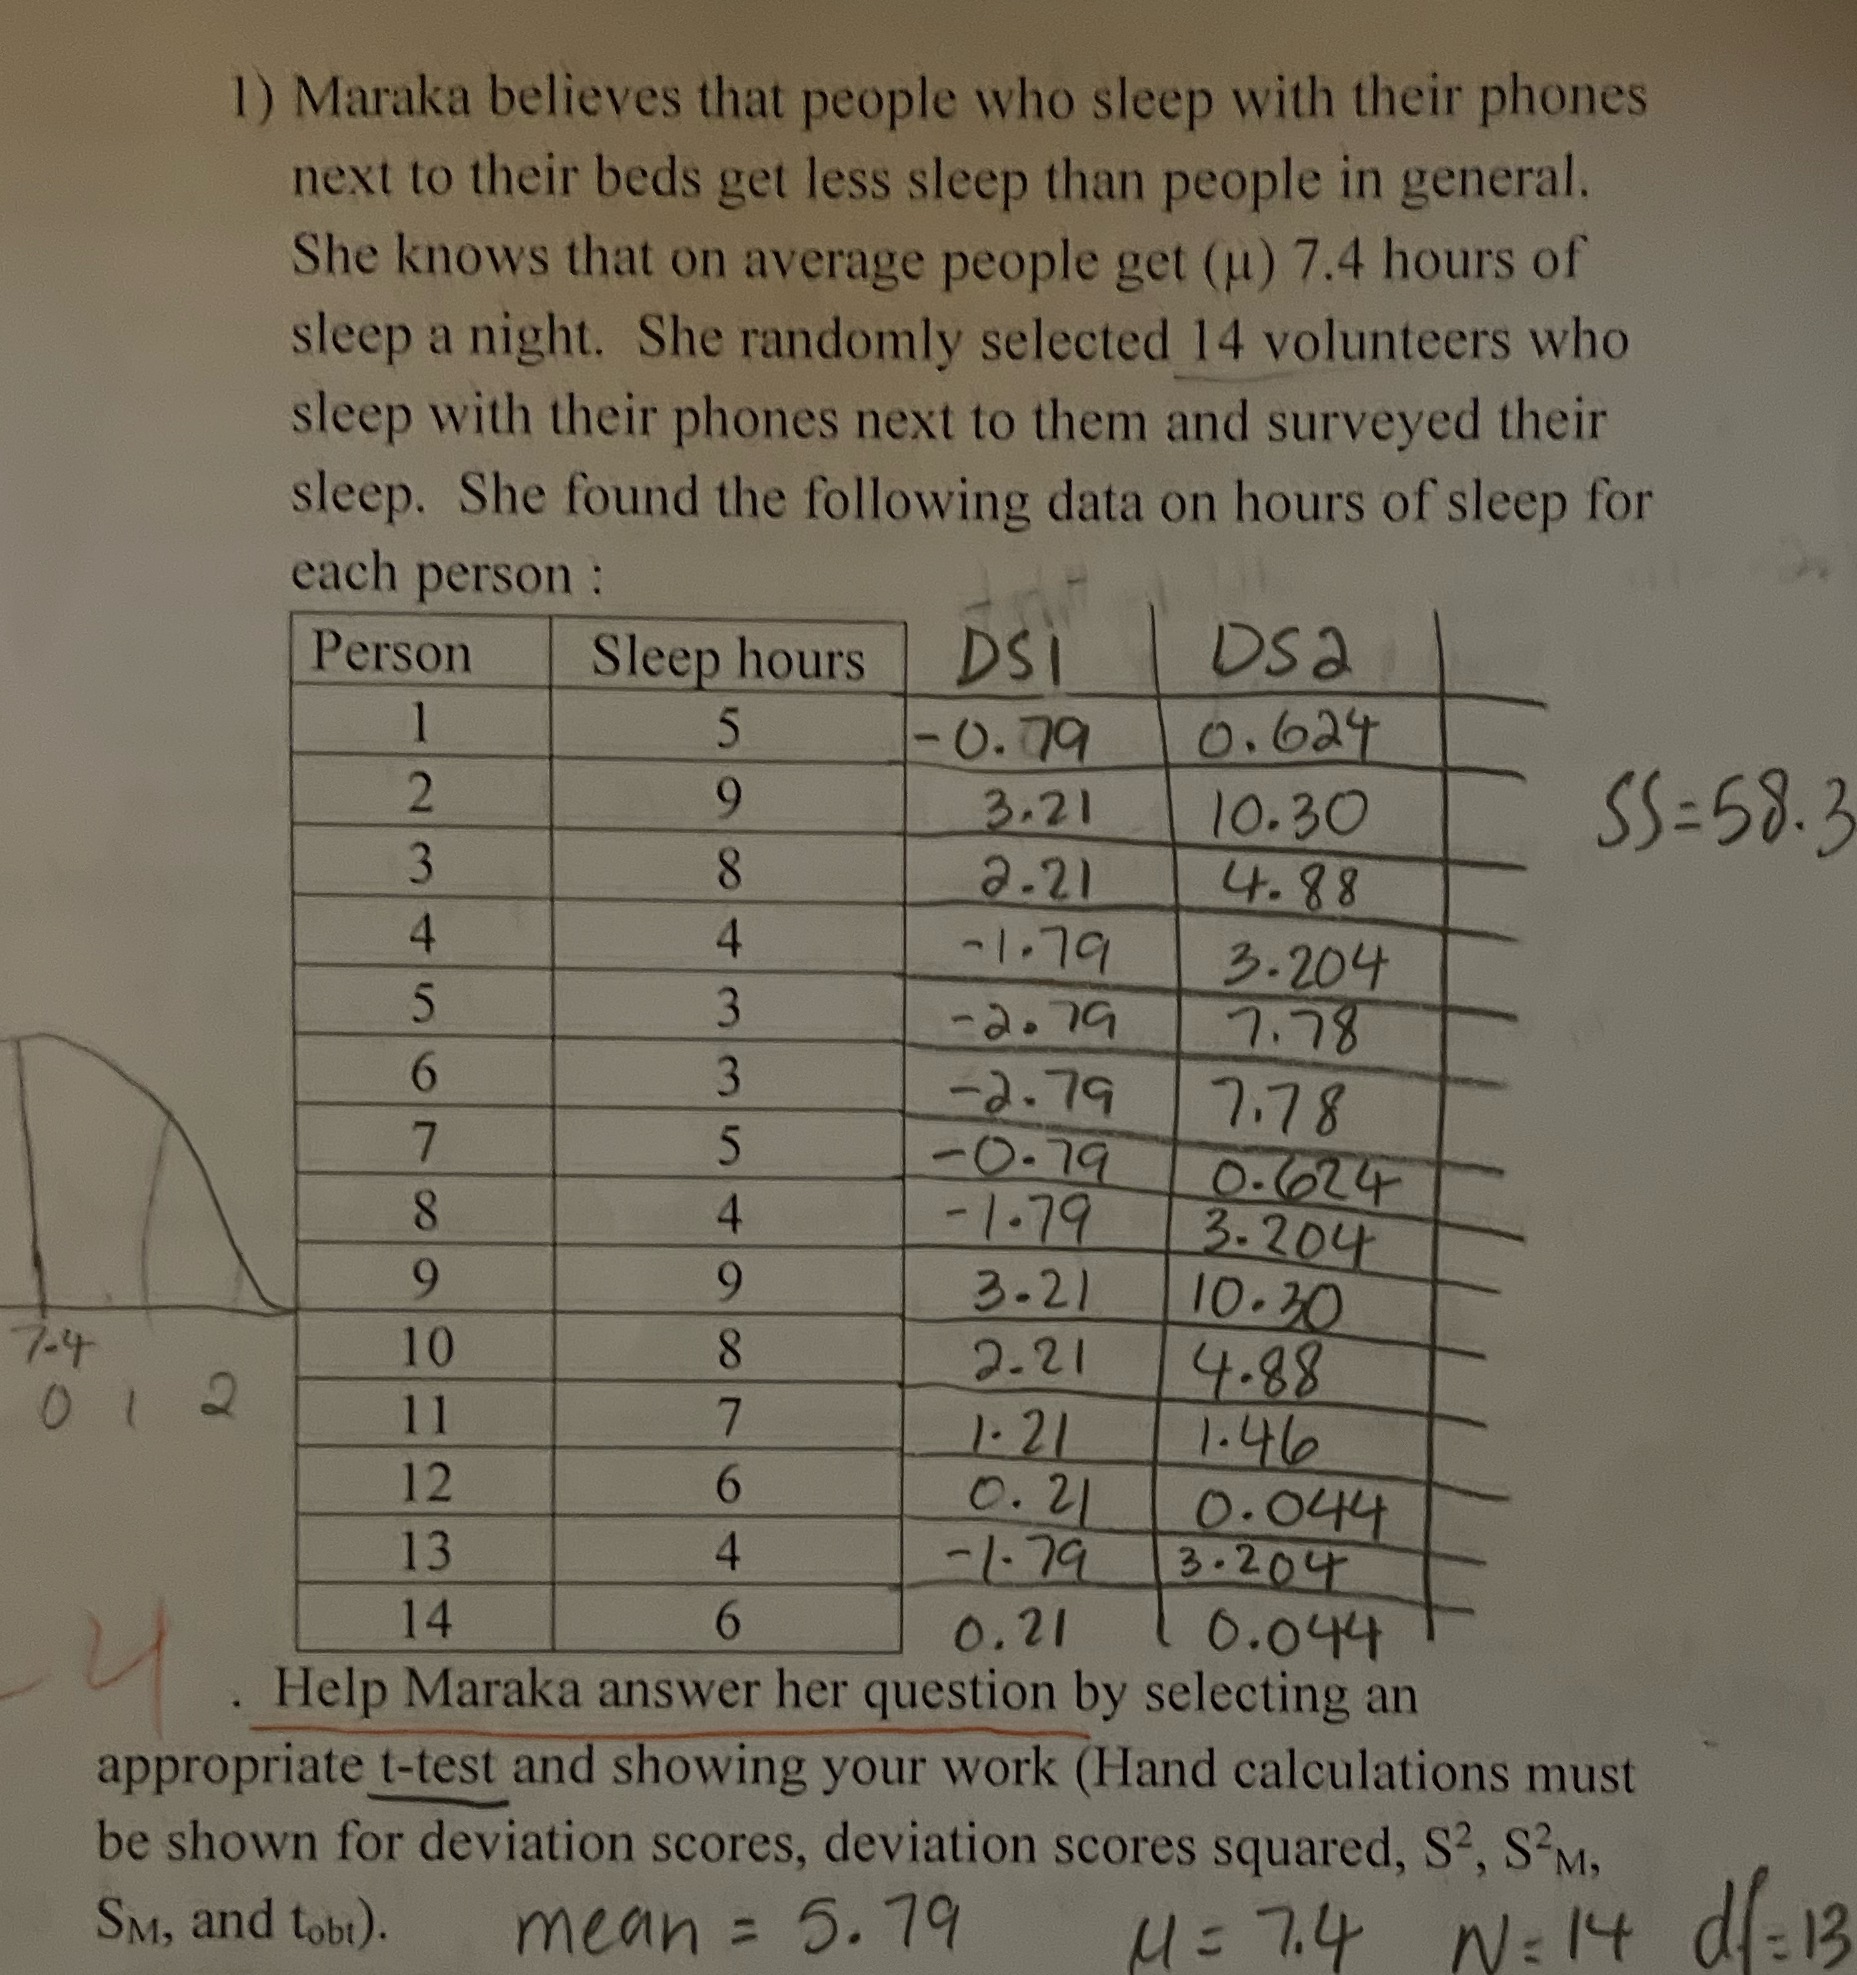 1) Maraka believes that people who sleep with their phones
next to their beds get less sleep than people in general.
She knows that on average people get (μ) 7.4 hours of
sleep a night. She randomly selected 14 volunteers who
sleep with their phones next to them and surveyed their
sleep. She found the following data on hours of sleep for
each person :
Person Sleep hours DS1 DS2
1 5 -0.79 0.624
2 9 3.21 10.30
SS=58.3
3 8 2.21 4.88
4 4 -1.79 3.204
5 3 -2.79 7.78
6 3 -2.79 7.78
7 5 -0.79 0.624
8 4 -1.79 3.204
9 9 3.21 10.30
7.4
10 8 2.21 4.88
0 1 2
11 7 1.21 1.46
12 6 0.21 0.044
13 4 -1.79 3.204
14 6 0.21 0.044
-4
. Help Maraka answer her question by selecting an
appropriate t-test and showing your work (Hand calculations must
be shown for deviation scores, deviation scores squared, S², S²M,
SM, and tobt). mean = 5.79 μ = 7.4 N = 14 df = 13